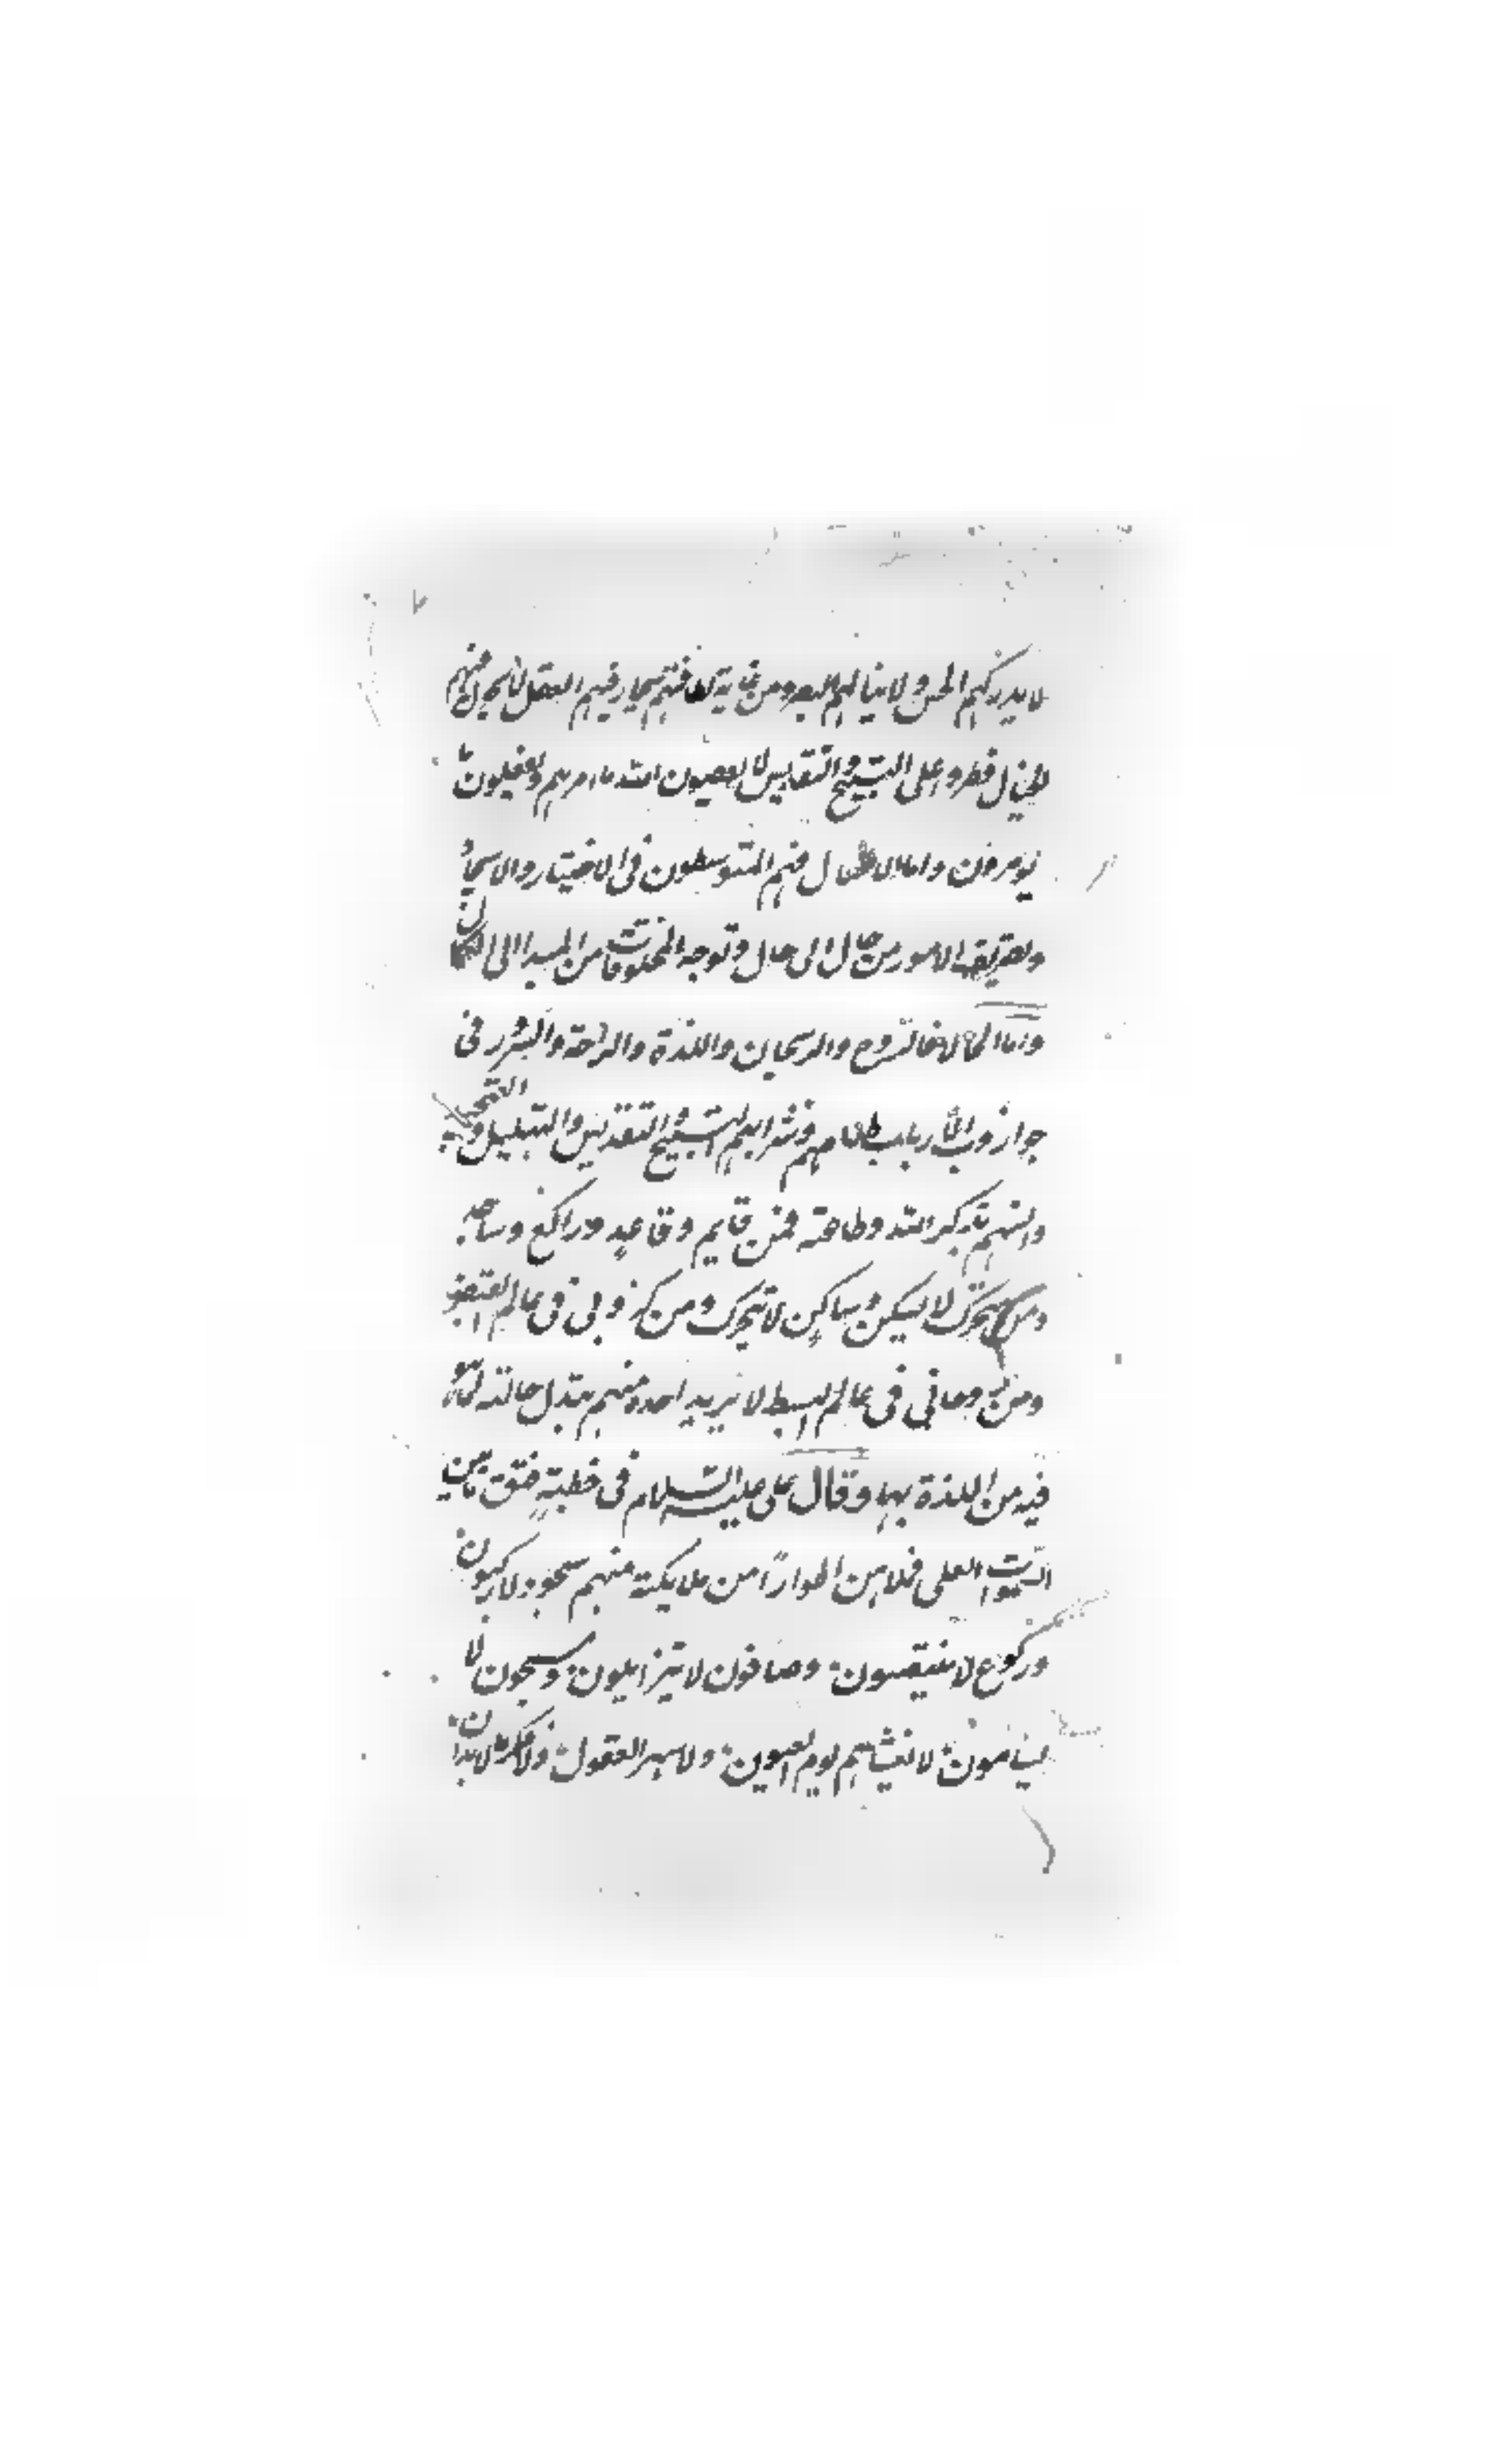 لا يدركهم الحس ولا ينالهم البصر ومن غاية لطافتهم يحار فيهم العقل لا يجول فيهم
الخيال فطروا على التسبيح والتقديس لا يعصون الله ما امرهم ويفعلون ما
يومرون واما الاعمال فهم المتوسطون فى الاختيار والايجاد
وتصريف الامور من حال الى حال وتوجه المخلوقات من المبدا الى الكمال
واما الحالات فالروح والريحان واللذة والراحة والبشر فى
جوار رب الارباب طعامهم وشرابهم التسبيح والتقديس والتهليل والتمجيد
وانسهم بذكر الله وطاعته فمن قايم وقاعد وراكع وساجد
ومن متحرك لا يسكن وساكن لا يتحرك ومن كروبى فى عالم القبض
ومن روحانى فى عالم البسط لا يريد احد منهم تبدل حالته لما
فيه من اللذة بها وقال على عليه السلام فى خطبة فتق ما بين
السموات العلى فملاهن اطوارا من ملايكته منهم سجود لا يركعون
وركوع لا ينتصبون وصافون لا يتزايلون ومسبحون لا
يسامون لا يغشاهم نوم العيون ولا سهو العقول ولا فترة الابدان